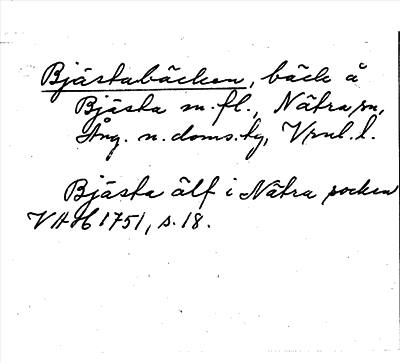 Bjästabäcken, bäck å
Bjästa m.fl., Nätra sn,
Ång. n. doms.hg, Vrnl. l.
Bjästa älf i Nätra socken
VAH 1751, s. 18.